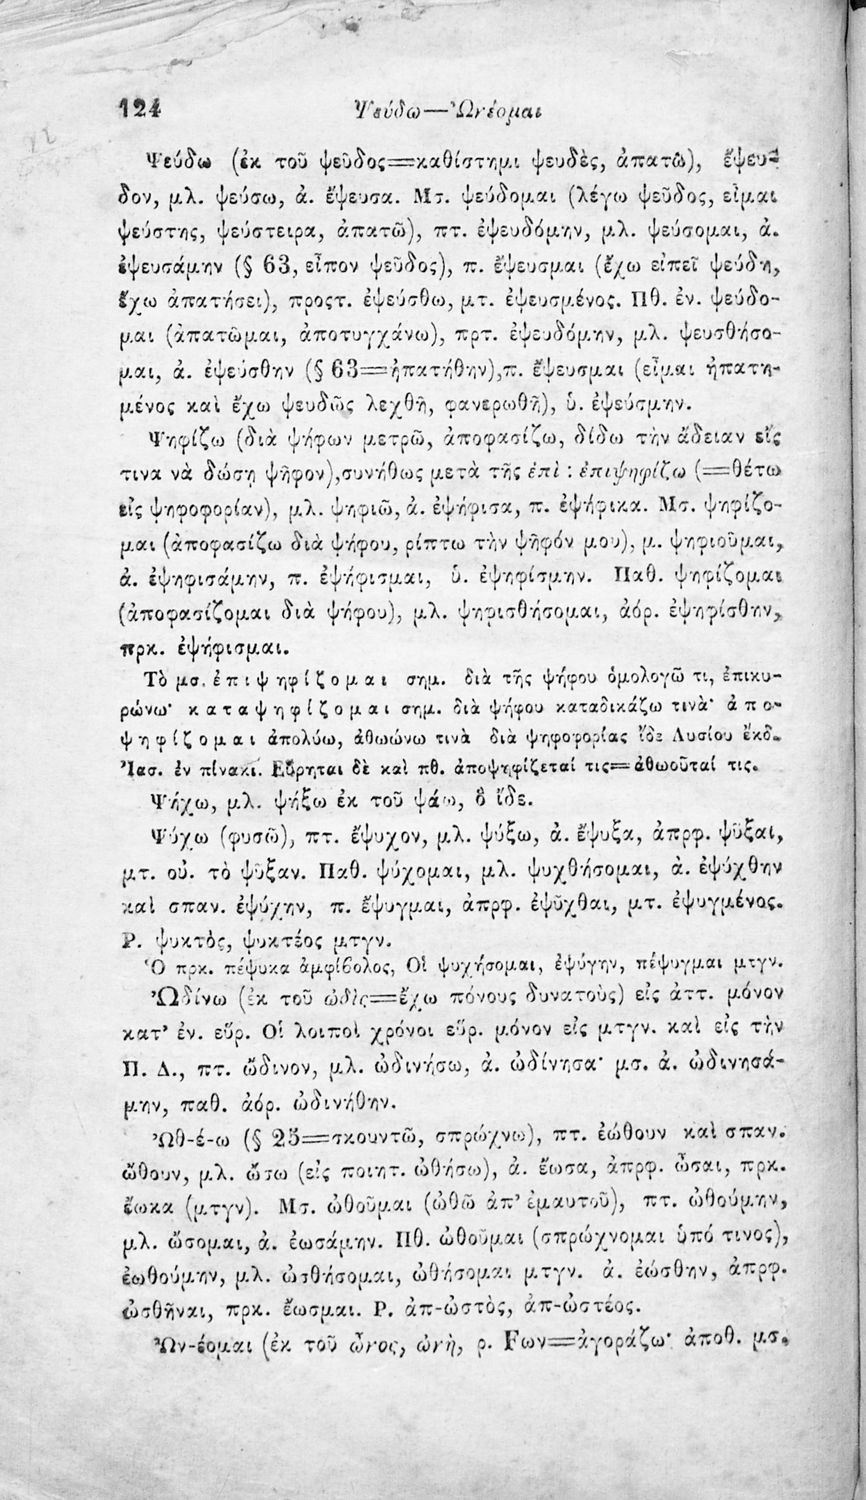 124
Ψεύδω—Ὠνέομαι
Ψεύδω (ἐκ τοῦ ψεῦδος=καθίστημι ψευδὲς, ἀπατῶ), ἔψευ-
δον, μλ. ψεύσω, ἀ. ἔψευσα. Μσ. ψεύδομαι (λέγω ψεῦδος, εἶμαι
ψεύστης, ψεύστειρα, ἀπατῶ), πτ. ἐψευδόμην, μλ. ψεύσομαι, ἀ.
ἐψευσάμην (§ 63, εἶπον ψεῦδος), π. ἔψευσμαι (ἔχω εἰπεῖ ψεύδη,
ἔχω ἀπατήσει), προςτ. ἐψεύσθω, μτ. ἐψευσμένος. Πθ. ἐν. ψεύδο-
μαι (ἀπατῶμαι, ἀποτυγχάνω), πρτ. ἐψευδόμην, μλ. ψευσθήσο-
μαι, ἀ. ἐψεύσθην (§ 63=ἠπατήθην),π. ἔψευσμαι (εἶμαι ἠπατη-
μένος καὶ ἔχω ψευδῶς λεχθῆ, φανερωθῆ), ὑ. ἐψεύσμην.
Ψηφίζω (διὰ ψήφων μετρῶ, ἀποφασίζω, δίδω τὴν ἄδειαν εἴς
τινα νὰ δώσῃ ψῆφον),συνήθως μετὰ τῆς ἐπὶ : ἐπιψηφίζω (=θέτω
εἰς ψηφοφορίαν), μλ. ψηφιῶ, ἀ. ἐψήφισα, π. ἐψήφικα. Μσ. ψηφίζο-
μαι (ἀποφασίζω διὰ ψήφου, ρίπτω τὴν ψῆφόν μου), μ. ψηφιοῦμαι,
ἀ. ἐψηφισάμην, π. ἐψήφισμαι, ὑ. ἐψηφίσμην. Παθ. ψηφίζομαι
(ἀποφασίζομαι διὰ ψήφου), μλ. ψηφισθήσομαι, ἀόρ. ἐψηφίσθην,
πρκ. ἐψήφισμαι.
Τὸ μσ. ἐπιψηφίζομαι σημ. διὰ τῆς ψήφου ὁμολογῶ τι, ἐπικυ-
ρώνω· καταψηφίζομαι σημ. διὰ ψήφου καταδικάζω τινὰ· ἀπο-
ψηφίζομαι ἀπολύω, ἀθωώνω τινὰ διὰ ψηφοφορίας ἴδε Λυσίου ἔκδ.
Ἰασ. ἐν πίνακι. Εὕρηται δὲ καὶ πθ. ἀποψηφίζεταί τις=ἀθωοῦταί τις.
Ψήχω, μλ. ψήξω ἐκ τοῦ ψάω, ὃ ἴδε.
Ψύχω (φυσῶ), πτ. ἔψυχον, μλ. ψύξω, ἀ. ἔψυξα, ἀπρφ. ψῦξαι,
μτ. οὐ. τὸ ψῦξαν. Παθ. ψύχομαι, μλ. ψυχθήσομαι, ἀ. ἐψύχθην
καὶ σπαν. ἐψύχην, π. ἔψυγμαι, ἀπρφ. ἐψῦχθαι, μτ. ἐψυγμένος.
Ρ. ψυκτὸς, ψυκτέος μτγν.
Ὁ πρκ. πέψυκα ἀμφίβολος, Οἱ ψυχήσομαι, ἐψύγην, πέψυγμαι μτγν.
Ὠδίνω (ἐκ τοῦ ὠδὶς=ἔχω πόνους δυνατοὺς) εἰς ἀττ. μόνον
κατ' ἐν. εὕρ. Οἱ λοιποὶ χρόνοι εὕρ. μόνον εἰς μτγν. καὶ εἰς τὴν
Π. Δ., πτ. ὤδινον, μλ. ὠδινήσω, ἀ. ὠδίνησα· μσ. ἀ. ὠδινησά-
μην, παθ. ἀόρ. ὠδινήθην.
Ὠθ-έ-ω (§ 25=σκουντῶ, σπρώχνω), πτ. ἐώθουν καὶ σπαν.
ὤθουν, μλ. ὤσω (εἰς ποιητ. ὠθήσω), ἀ. ἔωσα, ἀπρφ. ὦσαι, πρκ.
ἔωκα (μτγν). Μσ. ὠθοῦμαι (ὠθῶ ἀπ' ἐμαυτοῦ), πτ. ὠθούμην,
μλ. ὤσομαι, ἀ. ἐωσάμην. Πθ. ὠθοῦμαι (σπρώχνομαι ὑπό τινος),
ἐωθούμην, μλ. ὠσθήσομαι, ὠθήσομαι μτγν. ἀ. ἐώσθην, ἀπρφ.
ὠσθῆναι, πρκ. ἔωσμαι. Ρ. ἀπ-ὠστὸς, ἀπ-ὠστέος.
Ὠν-έομαι (ἐκ τοῦ ὦνος, ὠνὴ, ρ. Fων=ἀγοράζω· ἀποθ. μσ.